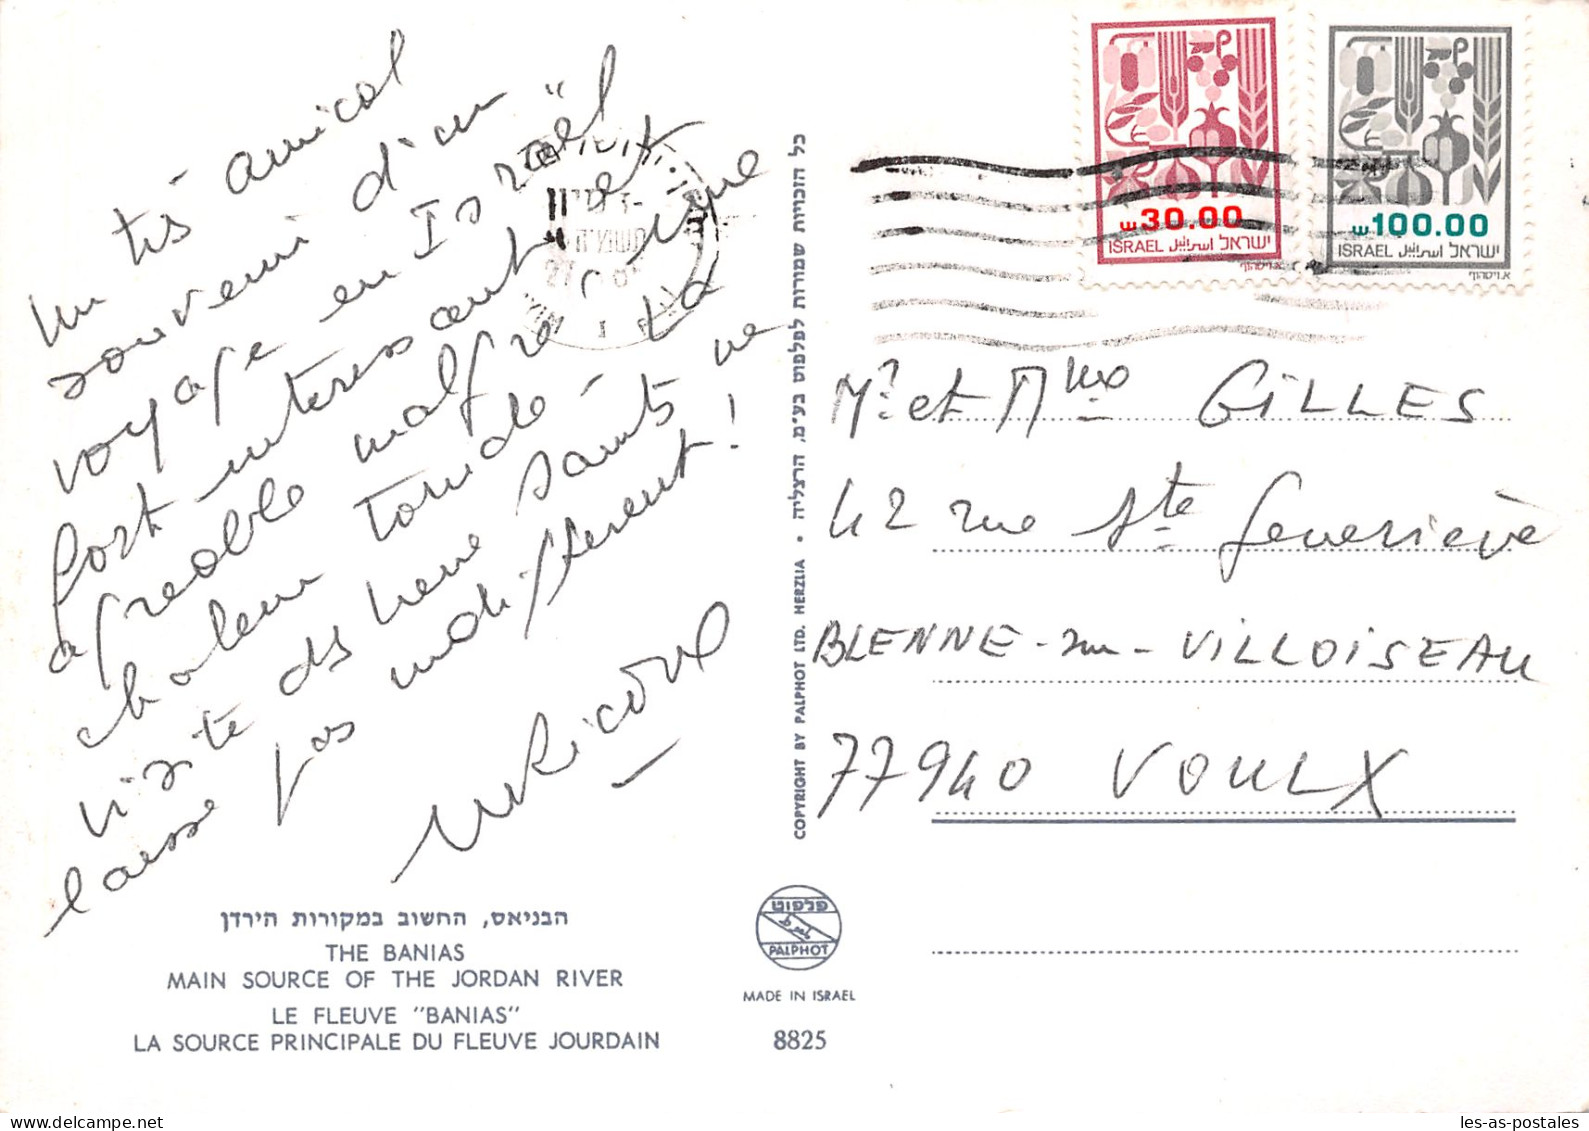 Un tès amical
souvenir d'un
voyage en Israël
fort interessant et
agréable malgré la
chaleur torride - 
visite des lieux saints ne
laisse pas indifferent !
30.00
ISRAEL اسرائيل ישראל
100.00
ISRAEL اسرائيل ישראל
Mr et Mme GILLES
42 rue Ste Geneviève
BLENNE-sur-VILLOISEAU
77940 VOULX
כל הזכויות שמורות לפלפוט בע"מ, הרצליה • COPYRIGHT BY PALPHOT LTD. HERZLIA
הבניאס, החשוב במקורות הירדן
THE BANIAS
MAIN SOURCE OF THE JORDAN RIVER
LE FLEUVE "BANIAS"
LA SOURCE PRINCIPALE DU FLEUVE JOURDAIN
פלפוט
PALPHOT
MADE IN ISRAEL
8825
les-as-postales